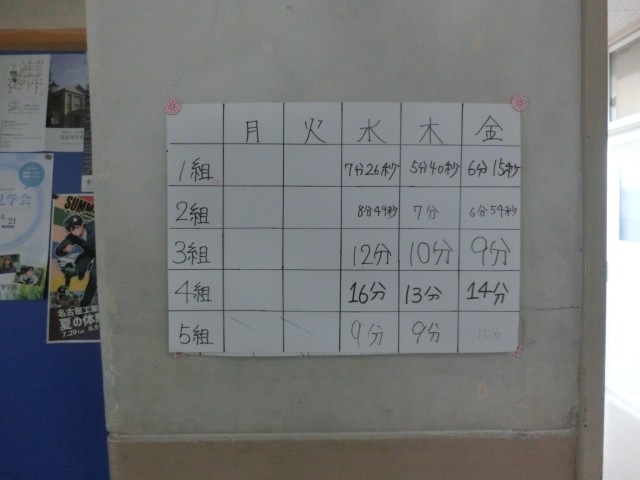 月 火 水 木 金
1組 7分26秒 5分40秒 6分15秒
2組 8分49秒 7分 6分54秒
3組 12分 10分 9分
4組 16分 13分 14分
5組 9分 9分 10分
見学会
21
SUMM
名古屋工業
夏の体
7.29